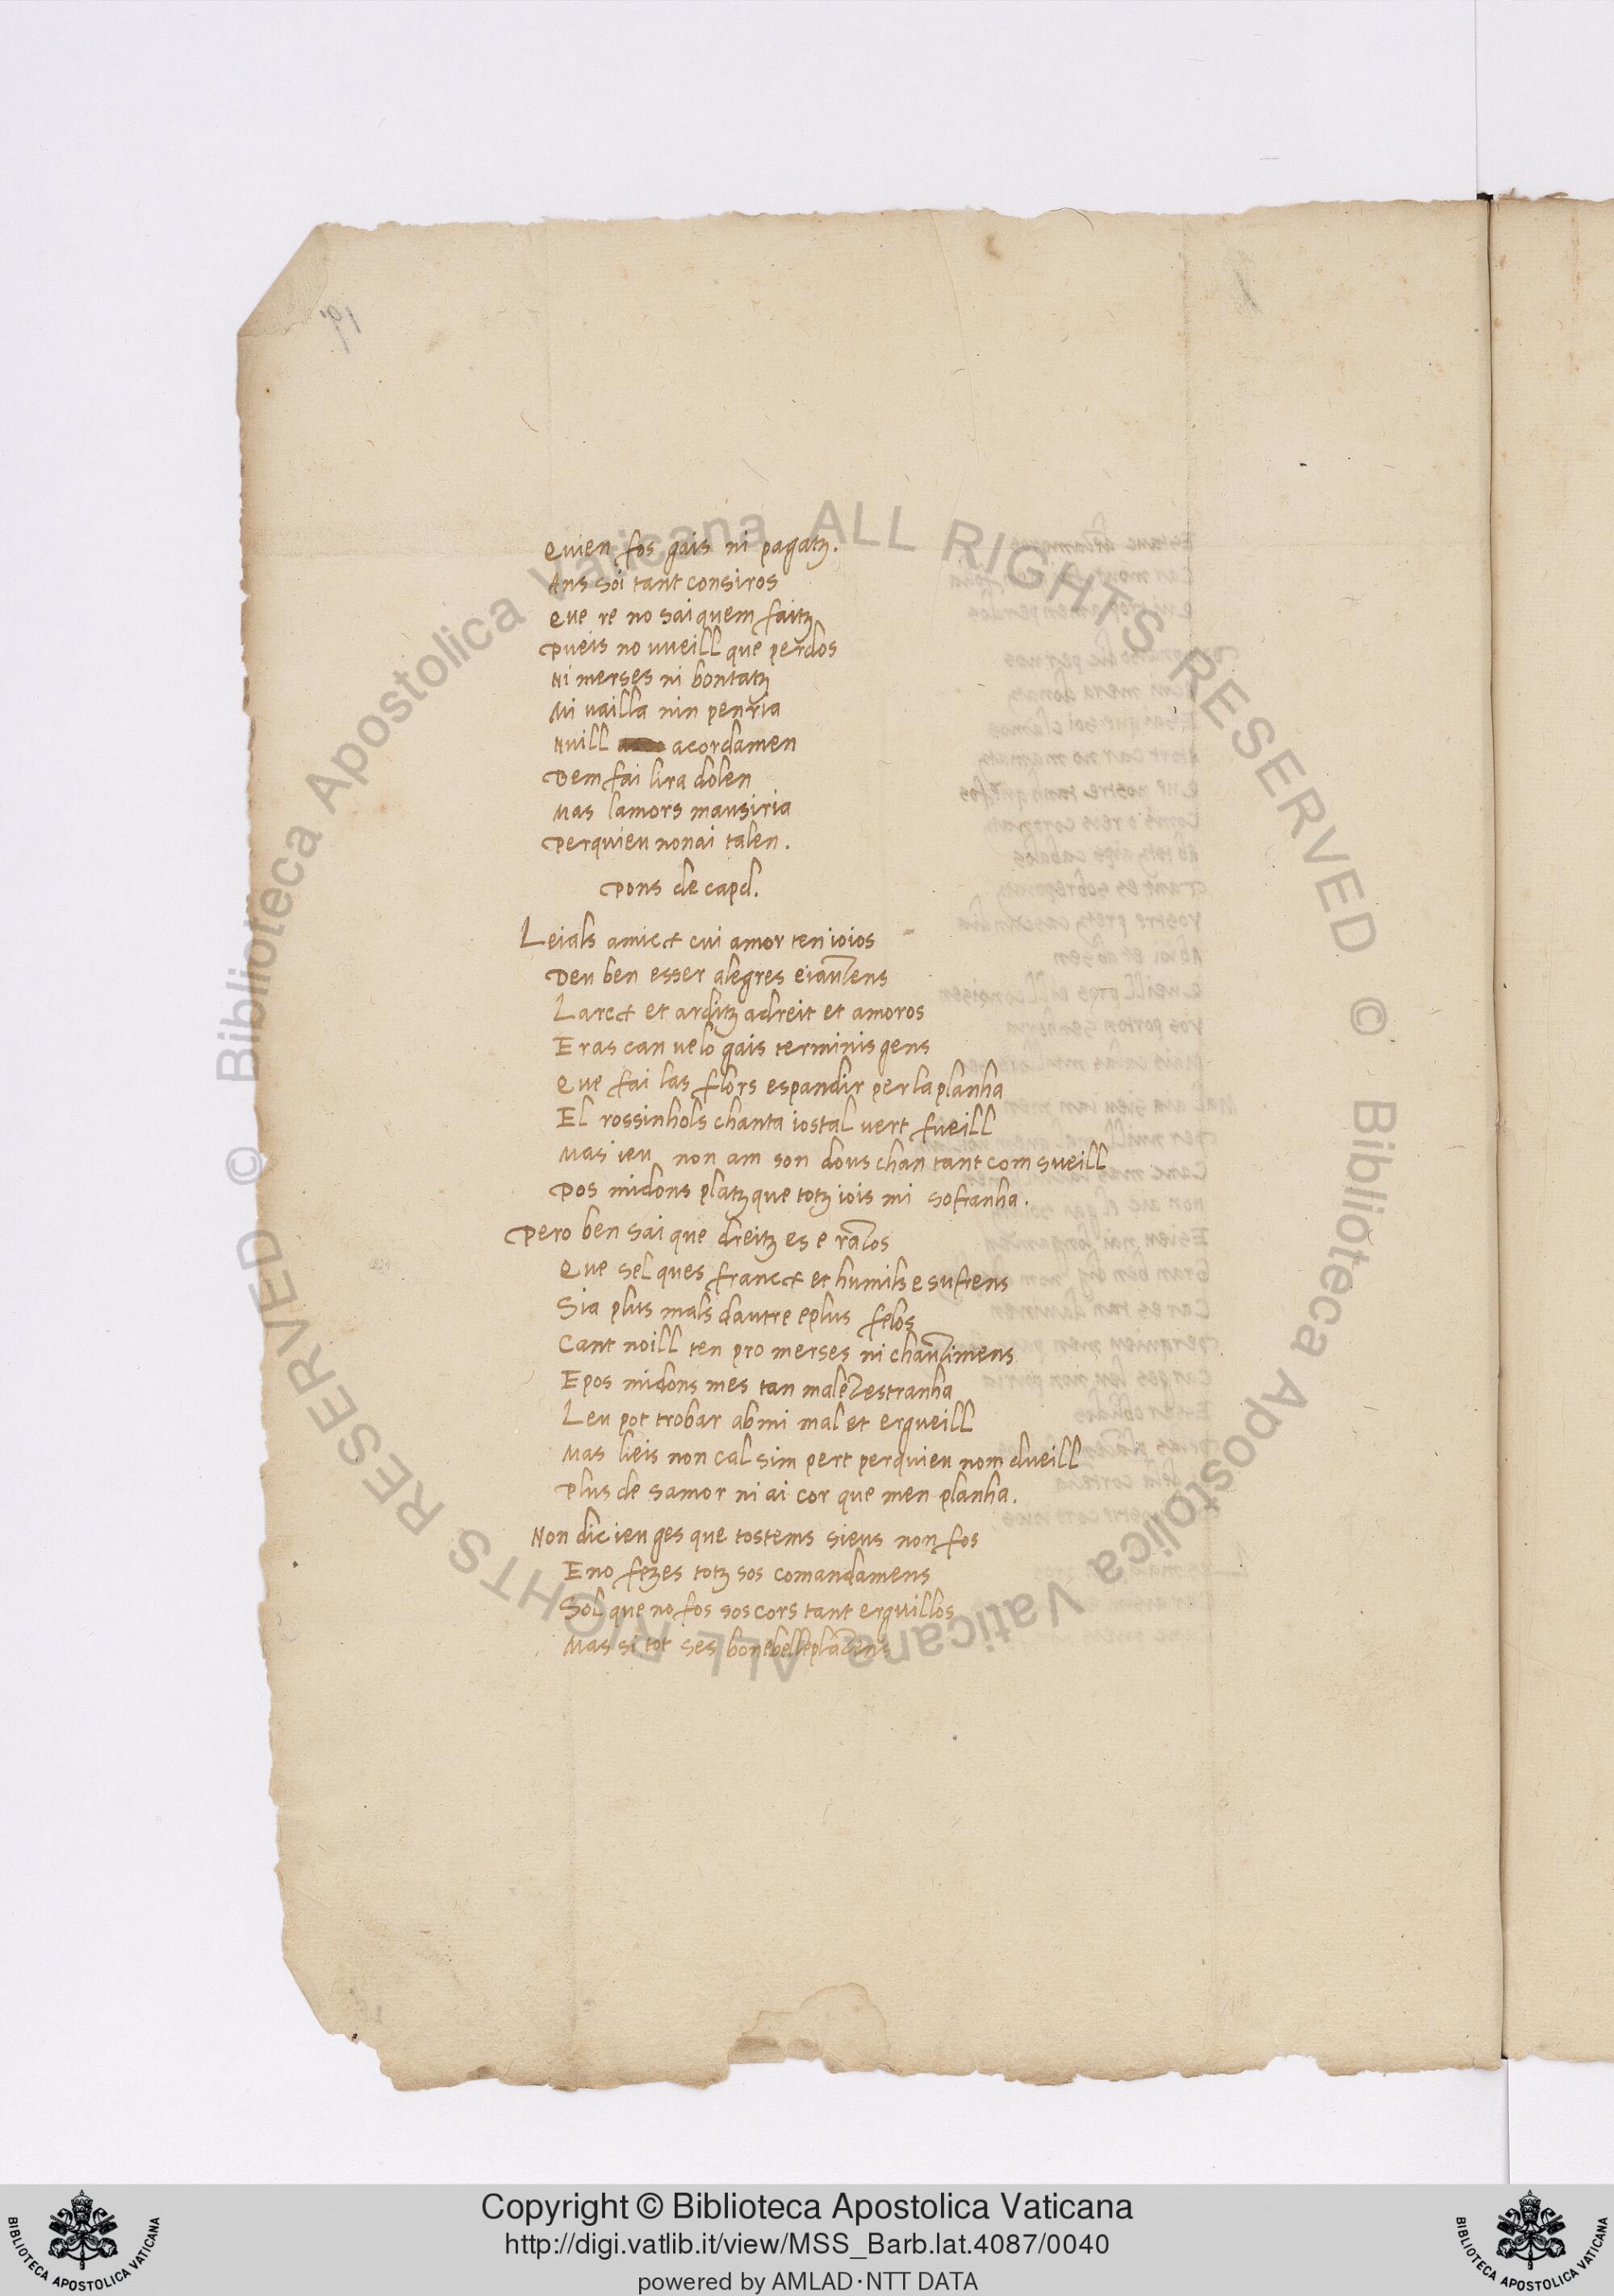 Quien fos gais ni pagatz.
Ans soi tant consiros
Que re no sai quem faitz
Pueis no uueill que perdos
Ni merses ni bontatz
Mi uailla nin penria
Nuill acordamen
Dem fai lira dolen
Mas lamors mausiria
Perquieu nonai talen.
Pons de capd.
Leials amicx cui amor ten ioios
Deu ben esser alegres eiauzens
Larcx et arditz adreit et amoros
Eras can uelo gais terminis gens
Que fai las flors espandir per la planha
El rossinhols chanta iostal uert fueill
Mas ieu non am son dous chan tant com sueill
Pos midons platz que totz iois mi sofranha.
Pero ben sai que dreitz es e razos
Que sel ques francx et humils e sufrens
Sia plus mals dautre eplus felos
Cant noill ten pro merses ni chauzimens
Epos midons mes tan male zestranha
Leu pot trobar abmi mal et ergueill
Mas lieis non cal sim pert perquieu nom dueill
Plus de samor ni ai cor que men planha.
Non dic ieu ges que tostems sieus non fos
Eno fezes totz sos comandamens
Sol que no fos sos cors tant erguillos
Mas si tot ses bonebelleplazens
© Biblioteca Apostolica Vaticana ALL RIGHTS RESERVED © Biblioteca Apostolica Vaticana ALL RIGHTS RESERVED
Copyright © Biblioteca Apostolica Vaticana
http://digi.vatlib.it/view/MSS_Barb.lat.4087/0040
powered by AMLAD·NTT DATA
BIBLIOTECA APOSTOLICA VATICANA
BIBLIOTECA APOSTOLICA VATICANA